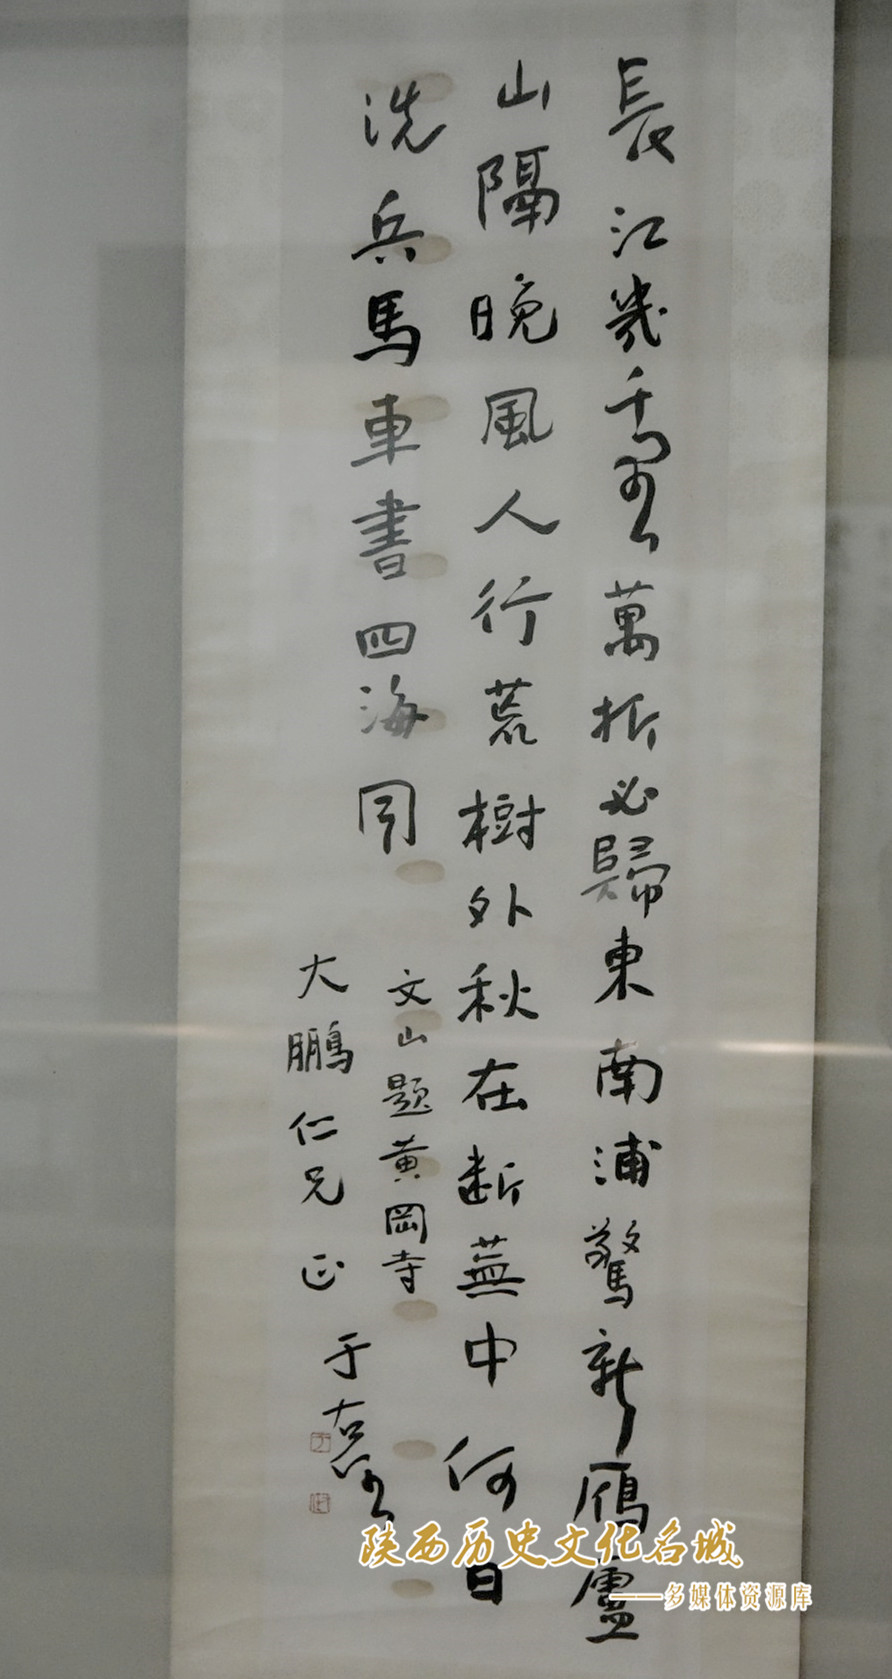 長江幾千里萬折必歸東南浦驚新鴈廬
山隔晚風人行荒樹外秋在断蕪中何日
洗兵馬車書四海同
文山題黄岡寺
大鵬仁兄正
于右任
陕西历史文化名城
——多媒体资源库